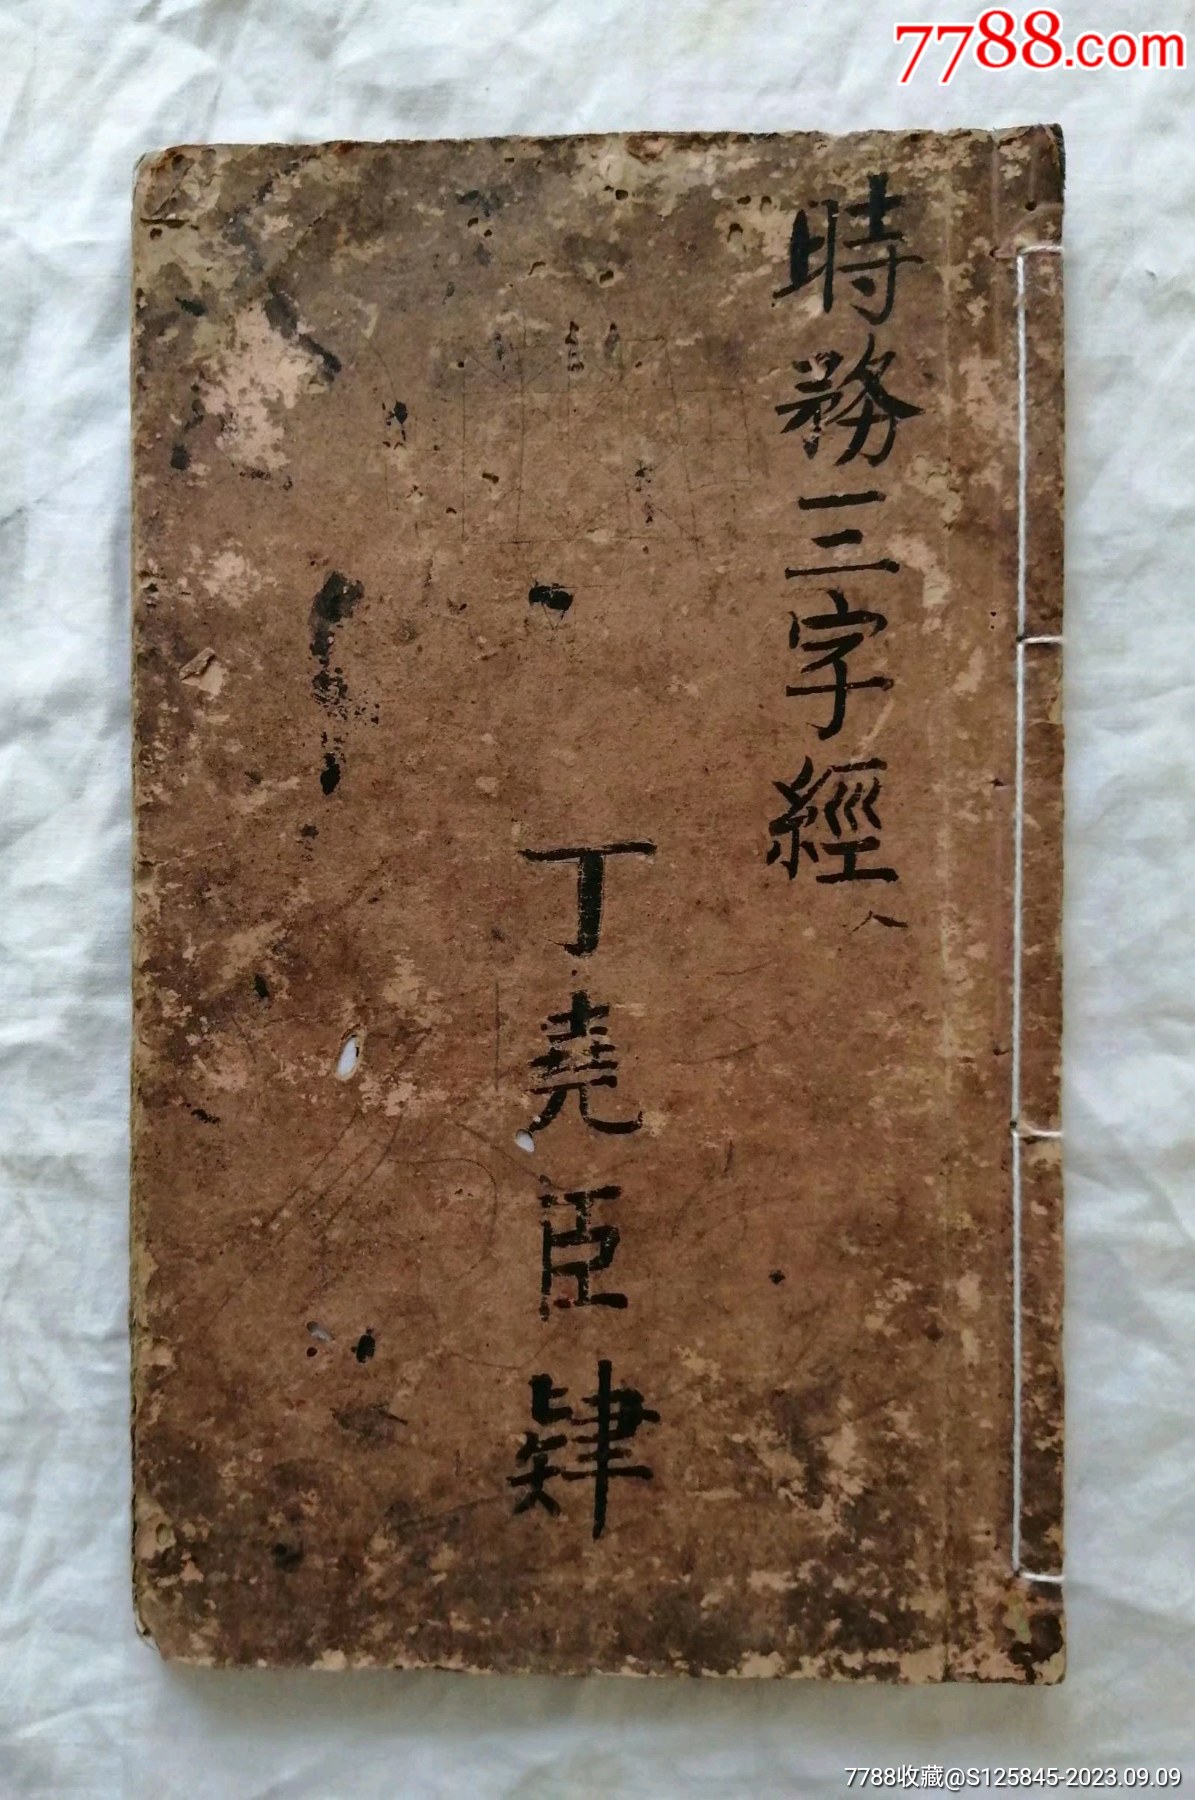 7788.com
時務三字經
丁堯臣肄
7788收藏@S125845-2023.09.09